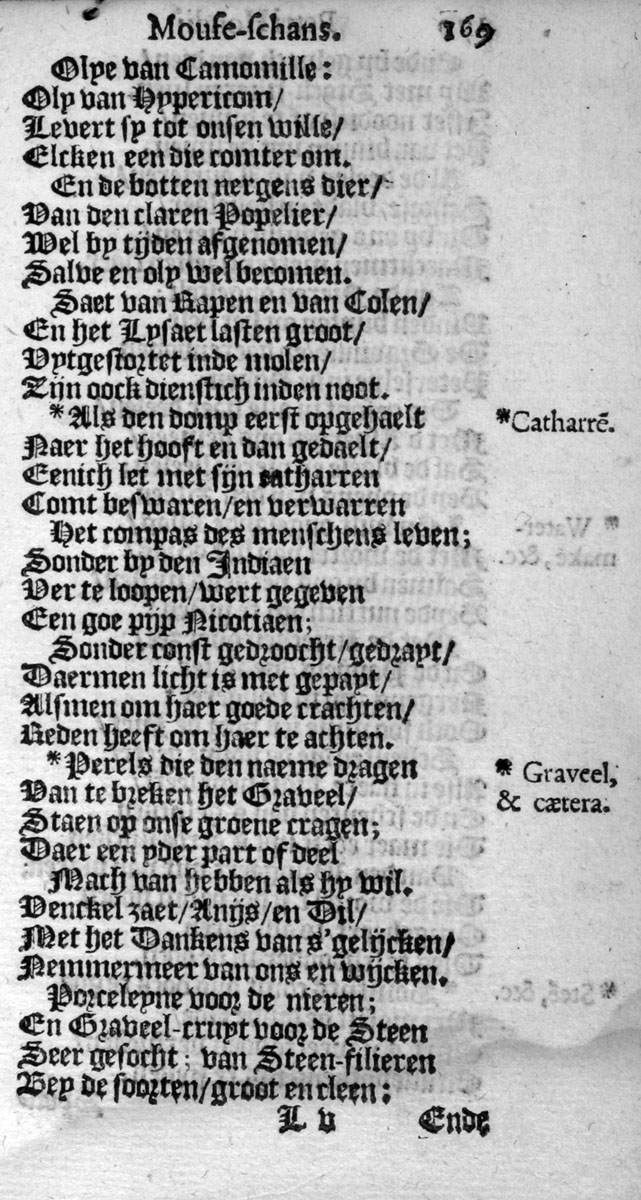 Mouse-schans. 169
Olye van Camomille:
Oly van Hypericom/
Levert sy tot onsen wille/
Elcken een die comter om.
En de botten nergens dier/
Van den claren Popelier/
Wel by tijden afgenomen/
Salve en oly wel becomen.
Saet van Rapen en van Colen/
En het Lysaet lasten groot/
Vytgestortet inde molen/
Zijn oock dienstich inden noot.
*Als den domp eerst opgehaelt *Catharrē.
Naer het hooft en dan gedaelt/
Eenich let met sijn catharren
Comt beswaren/en verwarren
Het compas des menschens leven;
Sonder by den Indiaen
Ver te loopen/wert gegeven
Een goe pijp Nicotiaen;
Sonder const gedroocht/gedrayt/
Daermen licht is met gepayt/
Alsmen om haer goede crachten/
Reden heeft om haer te achten.
*Perels die den naeme dragen * Graveel,
Van te breken het Graveel/ & cætera.
Staen op onse groene cragen;
Daer een yder part of deel
Mach van hebben als hy wil.
Venckel zaet/Anijs/en Dil/
Met het Dankens van s'gelijcken/
Nemmermeer van ons en wijcken.
Porceleyne voor de nieren;
En Graveel-cruyt voor de Steen
Seer gesocht; van Steen-filieren
Bey de soorten/groot en cleen:
L v Ende